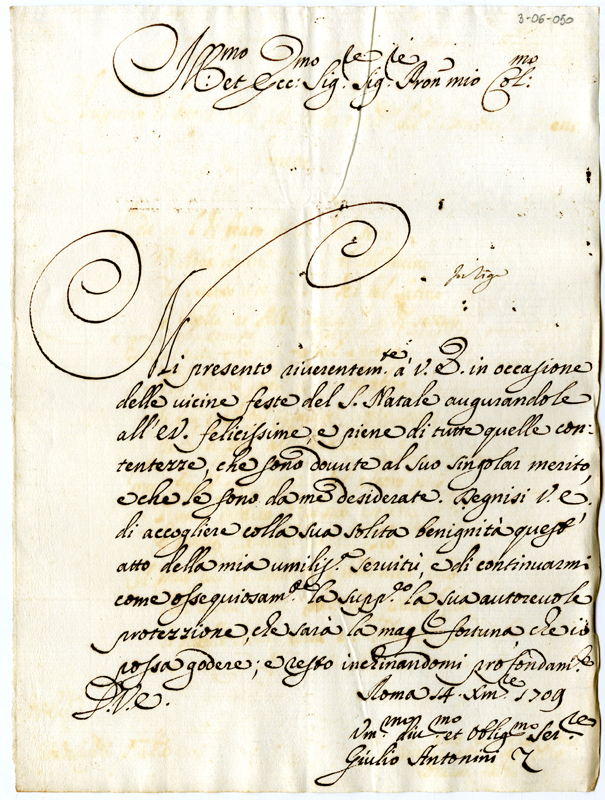 3-06-050
Ill.mo et Ecc.mo Sig.re Sig.re Pron mio Col.mo
Mi presento riverentem.te à V. E. in occasione
delle vicine feste del S. Natale augurandole
all'E.V. felicissime, e piene di tutte quelle con:
tentezze, che sono dovute al suo singolar merito,
e che le sono da me desiderate. Degnisi V. E.
di accogliere colla sua solita benignità quest'
atto della mia umiliss.a servitù, e di continuarmi
come ossequiosam.te la supp.co la sua autorevole
protezzione, che sarà la mag.re fortuna, che io
possa godere; e resto inchinandomi profondam.te
D. V. E.
Roma 14 Xm.re 1709
Vm.mo div.mo et Oblig.mo Ser.re
Giulio Antonini